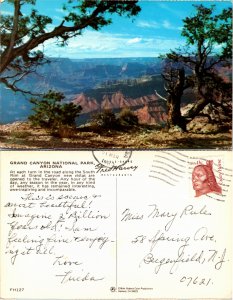 GRAND CANYON NATIONAL PARK,
ARIZONA
At each turn in the road along the South
Rim of Grand Canyon new vistas are
opened to the traveler. Any hour of the
day, any season in the year, in any kind
of weather, it has remained interesting,
awe-inspiring and incomparable.
Fred Harvey
This is scenic &
most beautiful!
Imagine 2 Million
years old! I am
feeling fine & enjoy-
ing it all.
Love
Frieda
FH127
Miss Mary Rules
58 Spring Ave.
Bergenfield, N.J.
07621.